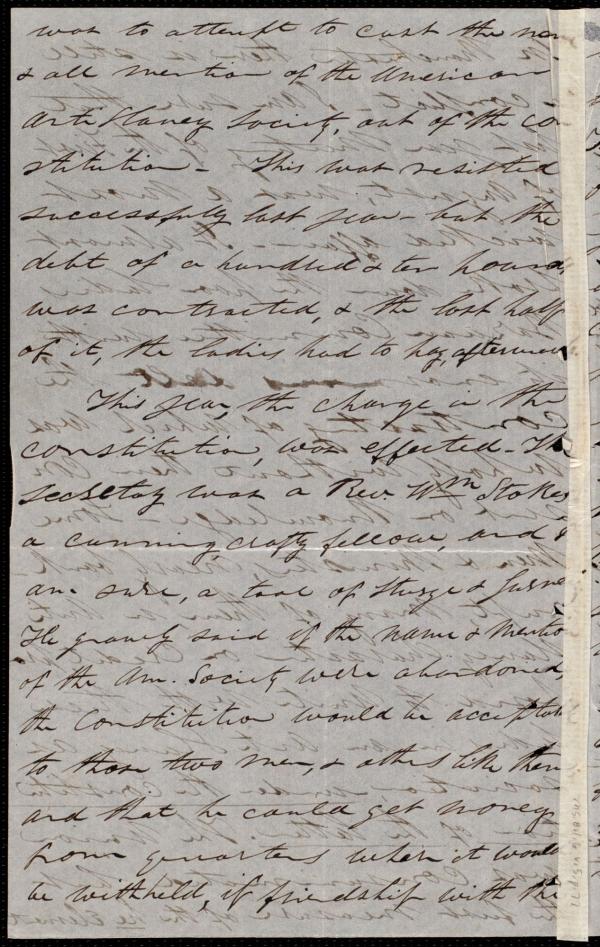 was to attempt to cast the nam
& all mention of the American
Anti Slavery Society, out of the co
stitution - This was resisted
successfully last year - but the
debt of a hundred & ten pounds
was contracted, & the last half
of it, the ladies had to pay, afterward
This year, the change in the
constitution, was effected - The
secretay was a Rev. Wm Stokes
a cunning, crafty fellow, and I
am sure, a tool of Sturge & Gurne
He gravely said if the name & mentio
of the Am. Society were abandoned,
the Constitution would be acceptab
to those two men, & others like them
and that he could get money
from quarters where it would
be withheld, if friendship with the